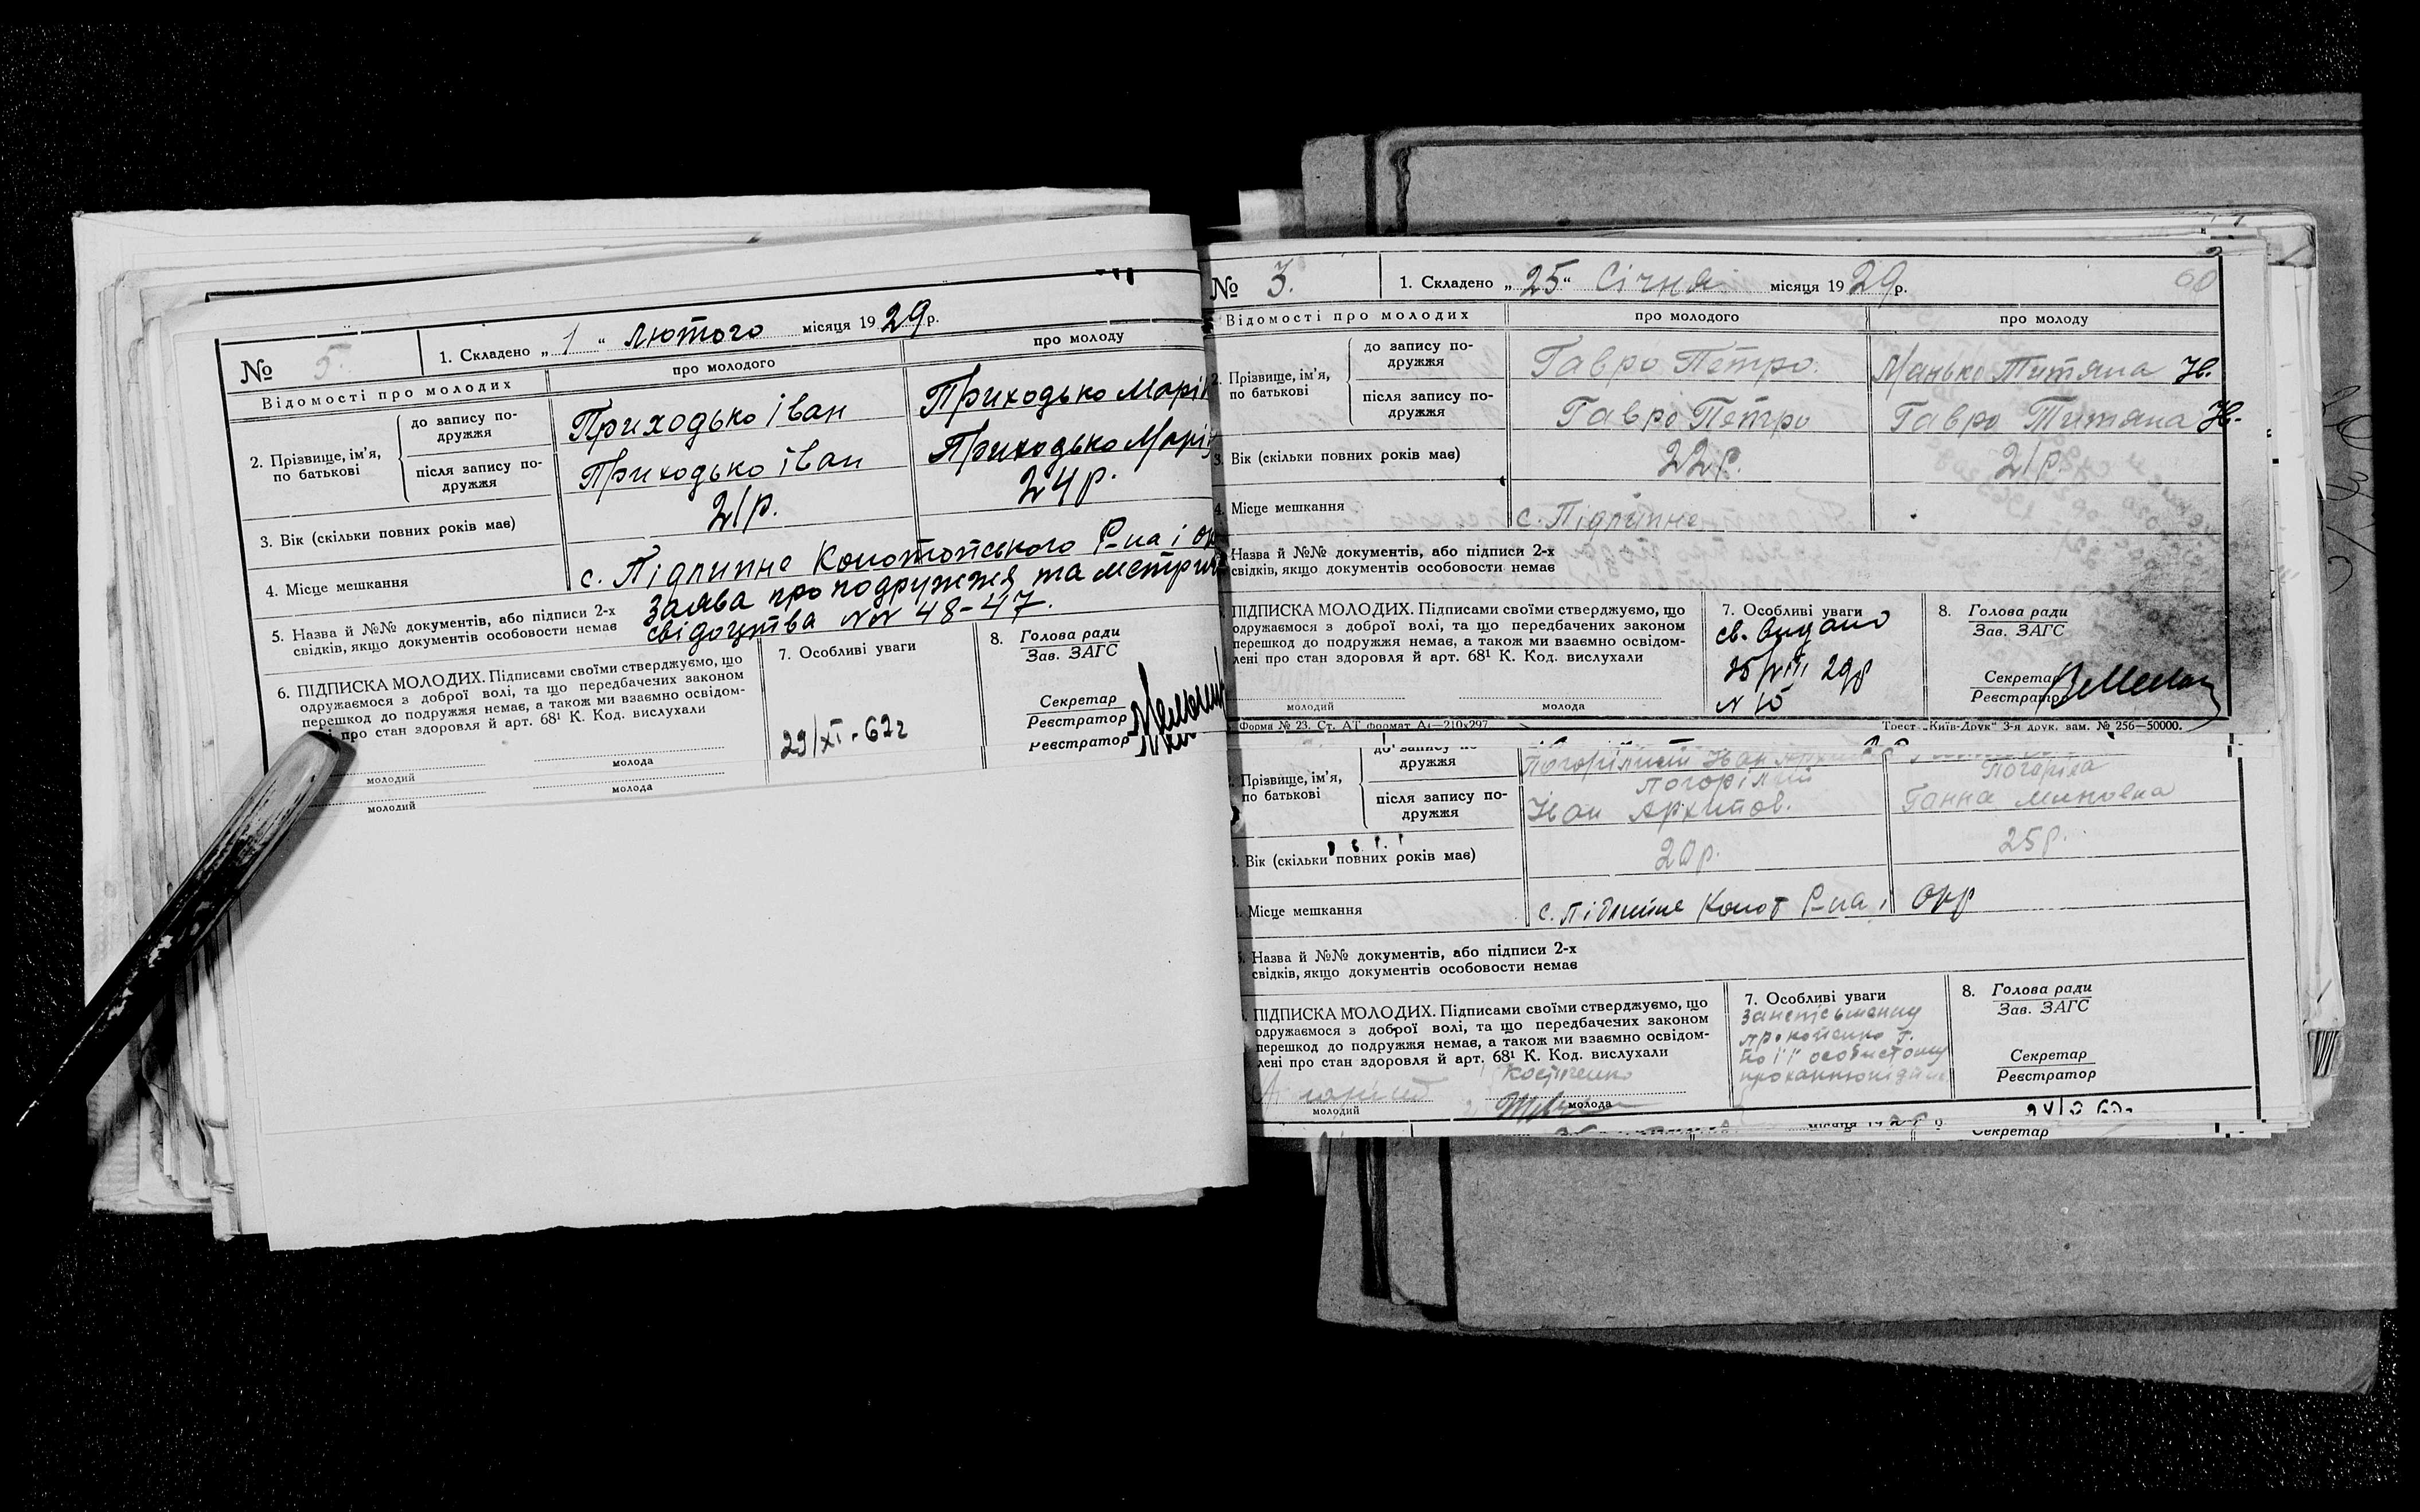 № 5. 1. Складено „ 1 “ лютого місяця 1929 р.
Відомості про молодих про молодого про молоду
2. Прізвище, ім'я, по батькові
до запису подружжя Приходько Іван Приходько Марі
після запису подружжя Приходько Іван Приходько Марі
3. Вік (скільки повних років має) 21р. 24р.
4. Місце мешкання с. Підлипне Конотопського Р-на і ок
5. Назва й №№ документів, або підписи 2-х Заява про подружжя та метрич
свідків, якщо документів особовости немає свідоцтва №№ 48-47.
6. ПІДПИСКА МОЛОДИХ. Підписами своїми стверджуємо, що
одружаємося з доброї волі, та що передбачених законом
перешкод до подружжя немає, а також ми взаємно освідом-
і про стан здоровля й арт. 68¹ К. Код. вислухали
молодий молода
молодий молода
7. Особливі уваги
29/XI-62г
8. Голова ради
Зав. ЗАГС
Секретар
Реєстратор
Реєстратор
№ 3. 1. Складено „ 25 “ Січня місяця 1929 р. 60
Відомості про молодих про молодого про молоду
2. Прізвище, ім'я, по батькові
до запису подружжя Гавро Петро. Манько Титяна Ів.
після запису подружжя Гавро Петро Гавро Титяна Ів.
3. Вік (скільки повних років має) 22р. 21р.
4. Місце мешкання с. Підлипне
Назва й №№ документів, або підписи 2-х
свідків, якщо документів особовости немає
ПІДПИСКА МОЛОДИХ. Підписами своїми стверджуємо, що
одружаємося з доброї волі, та що передбачених законом
перешкод до подружжя немає, а також ми взаємно освідом-
лені про стан здоровля й арт. 68¹ К. Код. вислухали
молодий молода
7. Особливі уваги
св. видано
N 15
8. Голова ради
Зав. ЗАГС
Секретар
Реєстратор
Форма № 23. Ст. АТ формат А₄—210х297 Трест „Київ-Друк“ 3-я друк. зам. № 256—50000.
Прізвище, ім'я, по батькові
до запису подружжя Погорілий Іван
після запису подружжя Погорілий Погоріла
Іван Архипов. Ганна
3. Вік (скільки повних років має) 20р. 25р.
Місце мешкання с. Підлипне Коност Р-на і окр
Назва й №№ документів, або підписи 2-х
свідків, якщо документів особовости немає
ПІДПИСКА МОЛОДИХ. Підписами своїми стверджуємо, що
одружаємося з доброї волі, та що передбачених законом
перешкод до подружжя немає, а також ми взаємно освідом-
лені про стан здоровля й арт. 68¹ К. Код. вислухали
молодий молода
7. Особливі уваги
За неписьменну
по її особистому
8. Голова ради
Зав. ЗАГС
Секретар
Реєстратор
місяця 19 Секретар